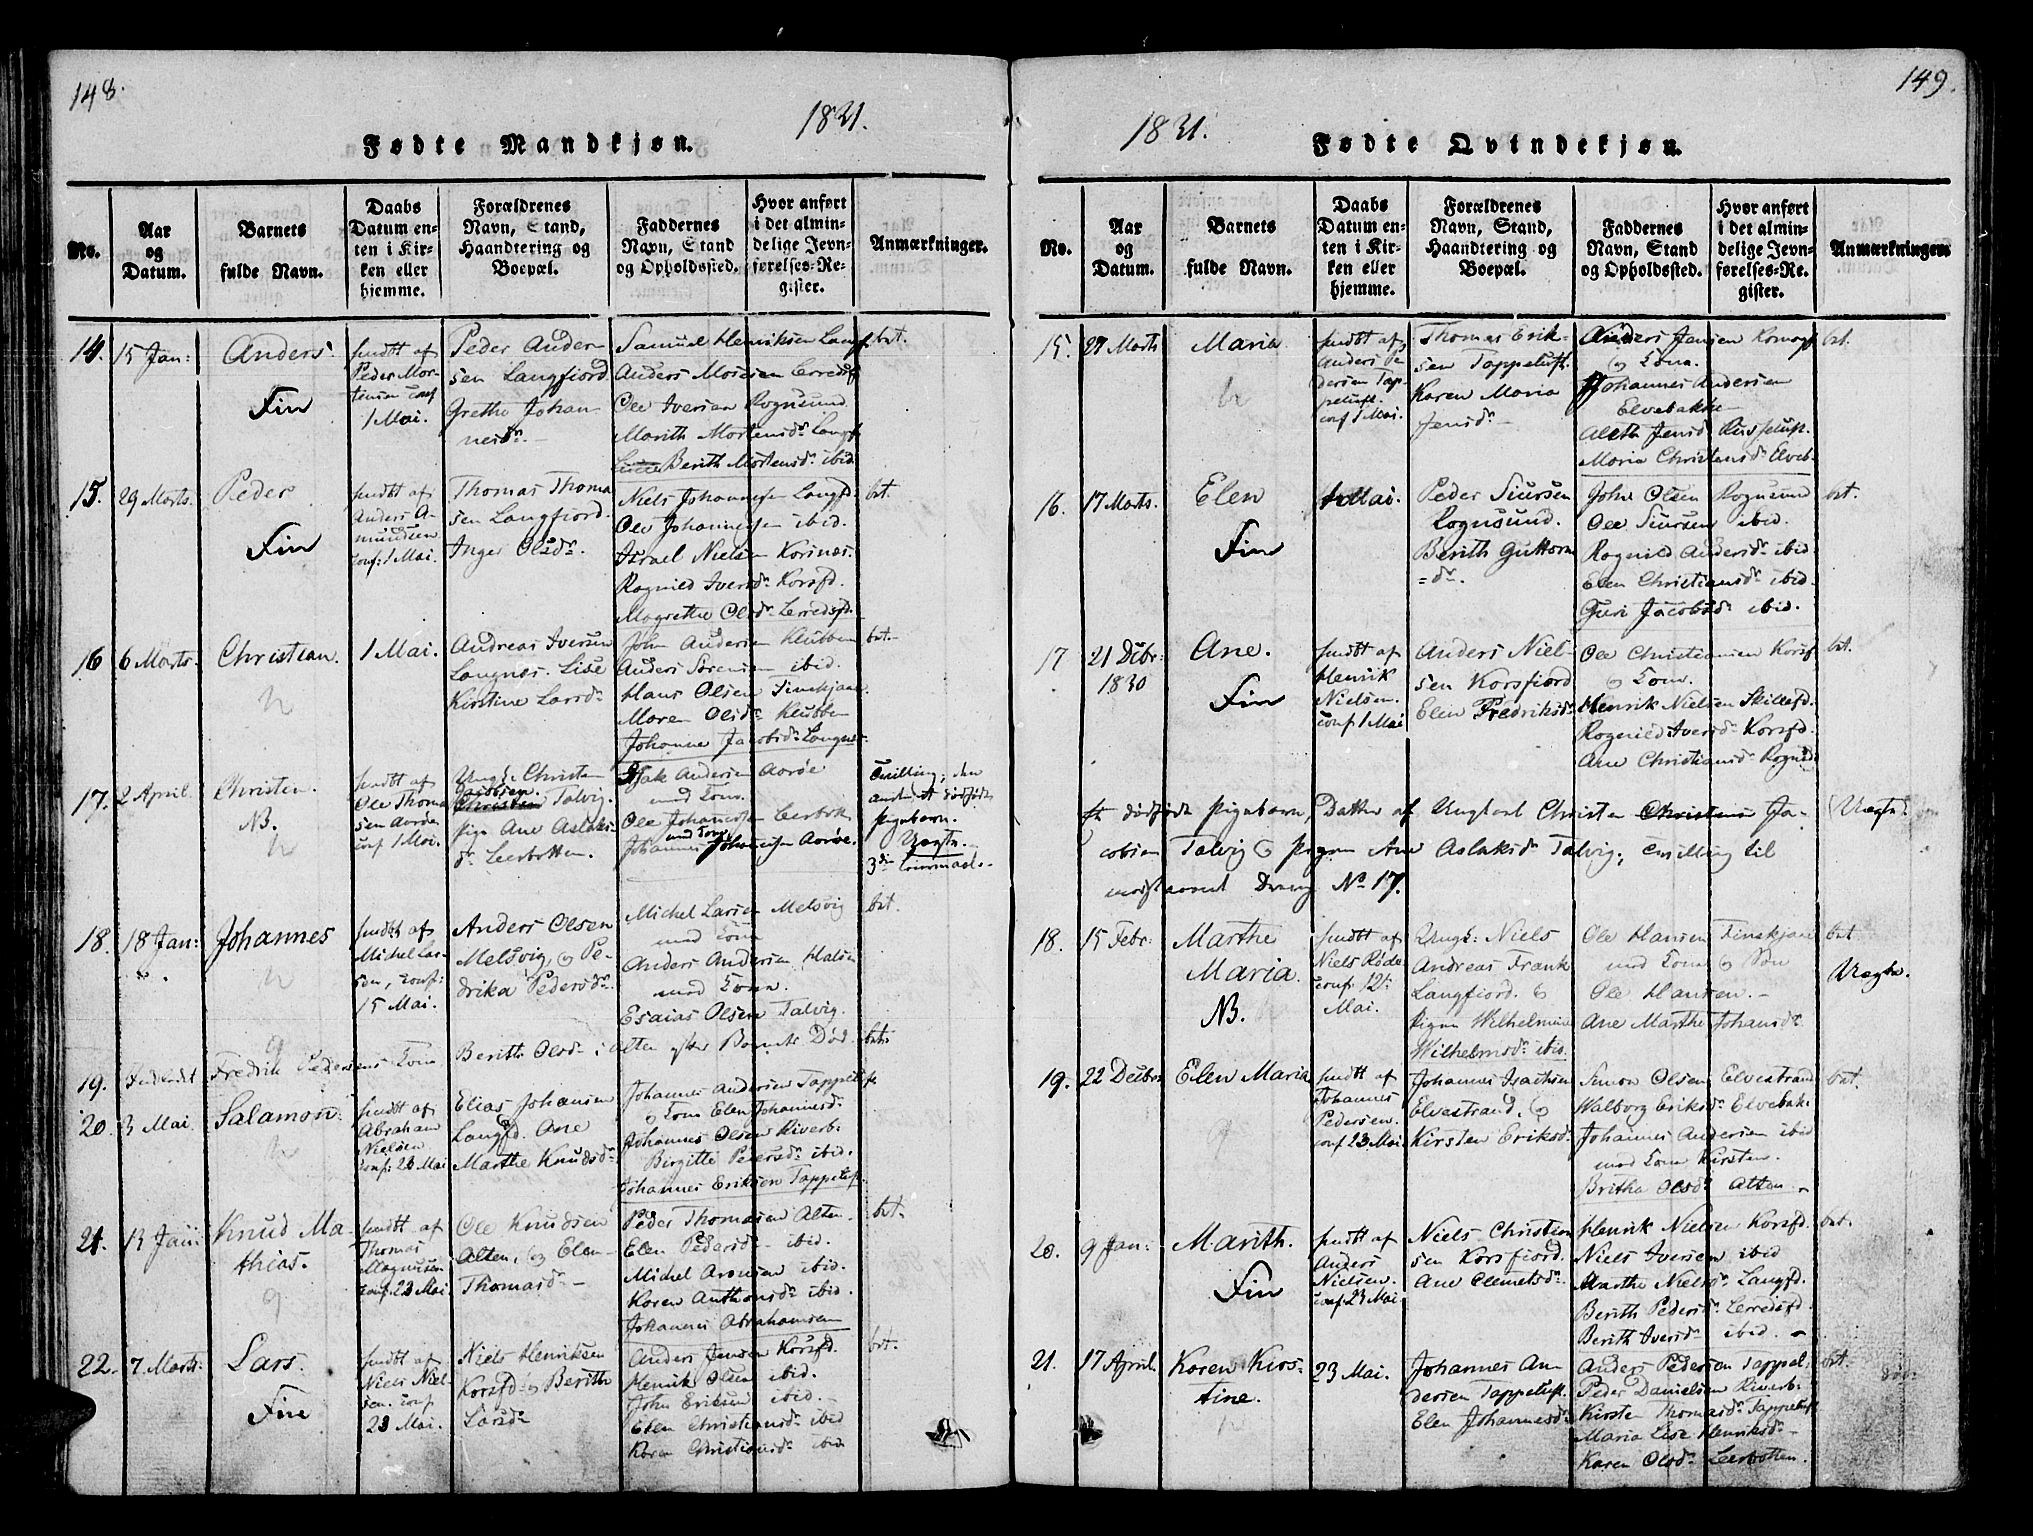 148.
1831.
Fødte Mandkjøn.
No.
Aar
og
Datum.
Barnets
fulde Navn.
Daabs
Datum en-
ten i Kir-
ken eller
hjemme.
Forældrenes
Navn, Stand,
Haandtering og
Boepæl.
Faddernes
Navn, Stand
og Opholdssted.
Hvor anført
i det almin-
delige Jevn-
førelses-Re-
gister.
Anmærkninger.
14. 15 Jan:
Anders.
Fin
hmdt af
Peder Mor-
tensen conf
1 Mai.
Peder Ander-
sen Langfiord
Grethe Johan-
nesdr.
Samuel Henriksen Langf.
Anders Mosesen Lerredsf.
Ole Iversen Rognsund
Marith Mortensdr Langf.
Berith Mortensdr ibid
bet.
15. 29 Marts.
Peder
Fin
hmdt af
Anders A-
mundsen
conf: 1 Mai.
Thomas Thoma
sen Langfiord.
Inger Olsdr.
Niels Johannesen Langfd.
Ole Johannesen ibid.
Israel Nielsen Korsnæs.
Rognild Iversdr Korsfd.
Magrethe Olsdr Lerredsfd.
bet.
16 6 Marts.
Christian.
1 Mai.
Andreas Iversen
Langnæs. Lise
Kirstine Larsdr
John Andersen Klubben
Anders Sørensen ibid.
Hans Olsen Finskjær.
Maren Olsdr Klubben
Johanne Jacobsdr Langnæs.
bet.
17. 2 April
Christen.
NB.
hmdt af
Ole Thoma
sen Aarøe
conf 1 Mai.
Ungk: Christen
Jacobsen
Talvig.
pige Ane Aslaks-
dr Leerbotten.
Isak Andersen Aarøe
med Kone.
Ole Johannesen Leerbotn
med Kone
Johannes Johannesen Aarøe.
Tvilling; den
anden et dødfødt
pigebarn.
Uægte.
3die Leiermaal.
18. 18 Jan:
Johannes
hmdt af
Michel Lar-
sen, conf:
15 Mai.
Anders Olsen
Melsvig, og Pe-
drika Pedersdr.
Michel Larsen Melsvig
med Kone
Anders Andersen
med Kone.
Esaias Olsen Talvig.
bet.
19.
Fredrik Pedersens Kone Berith Olsdr i Alten efter Barnets Død. bet.
20. 3 Mai.
Salamon.
hmdt af
Abraham
Nielsen
conf: 23 Mai
Elias Johansen
Langfd. Ane
Marthe Knudsdr
Johannes Andersen Tappeluft
og Kone Elen Johannesdr
Johannes Olsen Riverb-
Birgitte Petersdr ibid.
Johannes Eriksen Tappeluft.
21. 13 Jan:
Knud Ma-
thias.
hmdt af
Thomas
Magnusen
conf. 23 Mai.
Ole Knudsen
Alten, og Elen
Thomasdr
Peder Thomasen Alten.
Elen Pedersdr ibid.
Michel Aronsen ibid.
Karen Anthonsdr ibid.
Johannes Abrahamsen
bet.
22. 7 Marts:
Lars.
Fin
hmdt af
Niels Niel-
sen. conf
23 Mai.
Niels Henriksen
Korsfd og Berith
Larsdr
Anders Jensen Korsfd.
Henrik Olsen ibid.
John Eriksen ibid.
Elen Christiansdr ibid
Karen Christiansdr ibid
bet.
149.
1831.
Fødte Qvindekjøn.
No.
Aar
og
Datum.
Barnets
fulde Navn.
Daabs
Datum en-
ten i Kir-
ken eller
hjemme.
Forældrenes
Navn, Stand,
Haandtering og
Boepæl.
Faddernes
Navn, Stand
og Opholdssted.
Hvor anført
i det almin-
delige Jevn-
førelses-Re-
gister.
Anmærkninger
15. 29 Marts
Maria
hmdt af
Anders Pe-
dersen Tap-
peluft.
conf 1 Mai.
Thomas Erik-
sen Tappeluft.
Karen Maria
Jensdr
Anders Jensen
og Kone.
Johannes Andersen
Elvebakke
Aleth Jensdr Russeluft.
Maria Christensdr Elveb.
bet.
16. 17 Marts.
Elen
Fin
1 Mai.
Peder Siursen
Rognsund.
Berith Guttorm
=dr.
John Olsen Rognsund
Ole Siursen ibid.
Rognild Andersdr ibid
Elen Christiansdr ibid.
Guri Jacobsdr ibid.
bet.
17 21 Decbr:
1830
Ane.
Fin
hmdt af
Henrik
Nielsen.
conf 1 Mai
Anders Niel-
sen Korsfiord
Elen Fredriksdr
Ole Christiansen Korsf
og Kone.
Henrik Nielsen Skillefd.
Rognild Iversdr Korsfd.
Ane Christiansdr Rognsd
bet.
Et dødfødt Pigebarn, Datter af Ungkarl Christen Christensen Ja-
cobsen Talvig og pigen Ane Aslaksdr Talvig; Tvilling til
modstaaende Dreng No 17.
(Uægte.)
18. 15 Febr:
Marthe
Maria.
NB.
hmdt af
Niels Røde
conf. 12te
Mai.
Ungk: Niels
Andreas Frank
Langfiord. og
Pigen Wilhelmine
Wilhelmsdr ibid.
Ole Hansen Finskjær
med Kone og Søn
Ole Hansen.
Ane Marthe Johansdr
bet
Uægte.
19. 22 Decbr
Elen Maria
hmdt af
Johannes
Pedersen.
conf 23 Mai
Johannes Isachsen
Elvestrand, og
Kirsten Eriksdr
Simon Olsen Elvestrand
Walborg Eriksdr Elvebak.
Johannes Andersen ibid
med Kone Kirsten.
Britha Olsdr Alten.
bet.
20. 9 Jan:
Marith.
Fin
hmdt af
Anders
Nielsen.
conf. 23 Mai
Niels Christian
sen Korsfiord.
Ane Clemetsdr
Henrik Nielsen Korsfd.
Niels Iversen ibid
Marthe Nielsdr Langfd.
Berith Pedersdr Lerredsfd
Berith Iversdr ibid.
bet.
21. 17 April.
Karen Kirs-
tine.
23 Mai.
Johannes An-
dersen Tappeluft.
Elen Johannesdr
Anders Pedersen Tappel.
Peder Danielsen Riverb.
Kirsten Thomasdr Tappeluft
Maria Lise Henriksdr
Karen Olsdr Leerbotten.
bet.